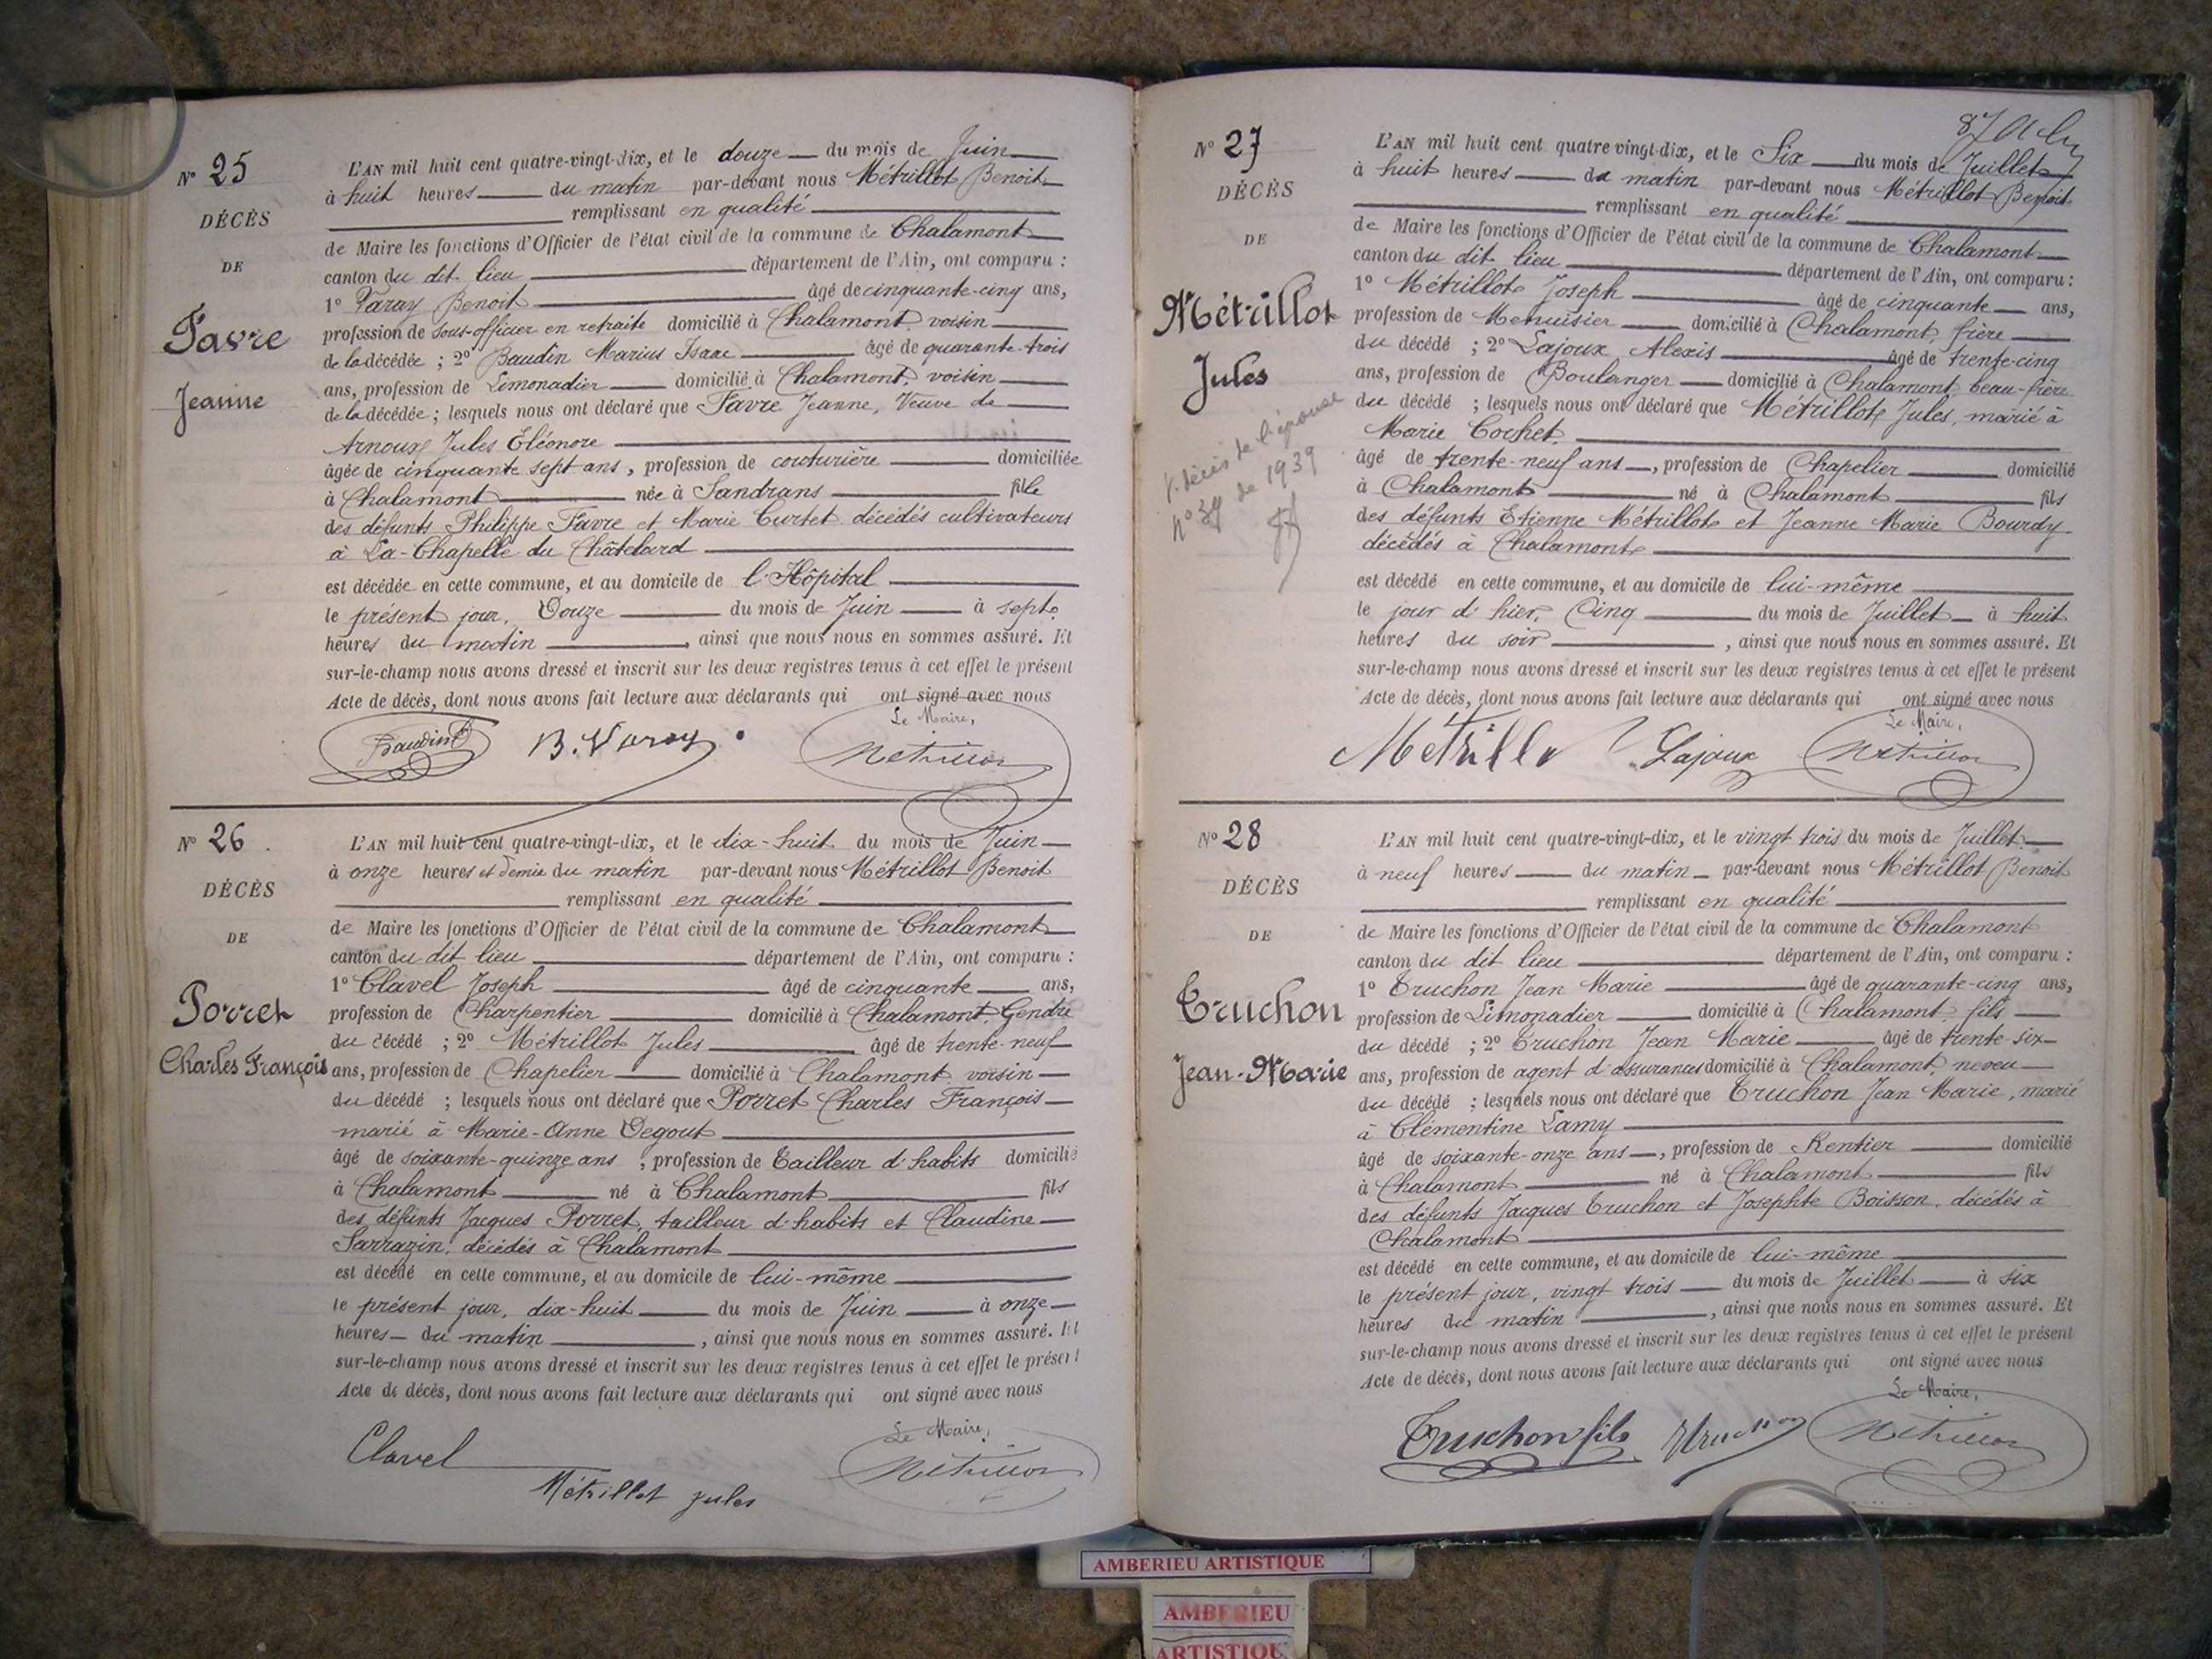 Nº 25
DÉCÈS
DE
Favre
Jeanne
L'AN mil huit cent quatre-vingt-dix, et le douze du mois de Juin
à huit heures du matin par-devant nous Métrillot Benoit
remplissant en qualité
de Maire les fonctions d'Officier de l'état civil de la commune de Chalamont
canton du dit lieu département de l'Ain, ont comparu :
1º Varay Benoit âgé de cinquante-cinq ans,
profession de sous-officier en retraite domicilié à Chalamont, voisin
de la décédée ; 2º Baudin Marius Isaac âgé de quarante-trois
ans, profession de Limonadier domicilié à Chalamont, voisin
de la décédée ; lesquels nous ont déclaré que Favre Jeanne, Veuve de
Arnoux Jules Eléonore
âgée de cinquante sept ans, profession de couturière domiciliée
à Chalamont née à Sandrans fille
des défunts Philippe Favre et Marie Curtet décédés cultivateurs
à La-Chapelle du Châtelard
est décédée en cette commune, et au domicile de l'Hôpital
le présent jour, Douze du mois de Juin à sept
heures du matin , ainsi que nous nous en sommes assuré. Et
sur-le-champ nous avons dressé et inscrit sur les deux registres tenus à cet effet le présent
Acte de décès, dont nous avons fait lecture aux déclarants qui ont signé avec nous
Le Maire,
Baudin B. Varay Métrillot
Nº 26
DÉCÈS
DE
Porret
Charles François
L'AN mil huit cent quatre-vingt-dix, et le dix-huit du mois de Juin
à onze heures et demie du matin par-devant nous Métrillot Benoit
remplissant en qualité
de Maire les fonctions d'Officier de l'état civil de la commune de Chalamont
canton du dit lieu département de l'Ain, ont comparu :
1º Clavel Joseph âgé de cinquante ans,
profession de Charpentier domicilié à Chalamont, Gendre
du décédé ; 2º Métrillot Jules âgé de trente-neuf
ans, profession de Chapelier domicilié à Chalamont voisin
du décédé ; lesquels nous ont déclaré que Porret Charles François
marié à Marie-Anne Degout
âgé de soixante-quinze ans ; profession de Tailleur d'habits domicilié
à Chalamont né à Chalamont fils
des défunts Jacques Porret, tailleur d'habits et Claudine
Sarrazin, décédés à Chalamont
est décédé en cette commune, et au domicile de lui-même
le présent jour, dix-huit du mois de Juin à onze
heures du matin , ainsi que nous nous en sommes assuré. Et
sur-le-champ nous avons dressé et inscrit sur les deux registres tenus à cet effet le présent
Acte de décès, dont nous avons fait lecture aux déclarants qui ont signé avec nous
Le Maire,
Clavel Métrillot
Métrillot Jules
87
Nº 27
DÉCÈS
DE
Métrillot
Jules
V. décès de l'épouse
nº 39 de 1939
L'AN mil huit cent quatre-vingt-dix, et le Six du mois de Juillet
à huit heures du matin par-devant nous Métrillot Benoit
remplissant en qualité
de Maire les fonctions d'Officier de l'état civil de la commune de Chalamont
canton du dit lieu département de l'Ain, ont comparu :
1º Métrillot Joseph âgé de cinquante ans,
profession de Menuisier domicilié à Chalamont, frère
du décédé ; 2º Lajoux Alexis âgé de trente-cinq
ans, profession de Boulanger domicilié à Chalamont beau-frère
du décédé ; lesquels nous ont déclaré que Métrillot Jules, marié à
Marie Cochet
âgé de trente-neuf ans , profession de Chapelier domicilié
à Chalamont né à Chalamont fils
des défunts Etienne Métrillot et Jeanne Marie Bourdy
décédés à Chalamont
est décédé en cette commune, et au domicile de lui-même
le jour d'hier, Cinq du mois de Juillet à huit
heures du soir , ainsi que nous nous en sommes assuré. Et
sur-le-champ nous avons dressé et inscrit sur les deux registres tenus à cet effet le présent
Acte de décès, dont nous avons fait lecture aux déclarants qui ont signé avec nous
Le Maire,
Métrillo Lajoux Métrillot
Nº 28
DÉCÈS
DE
Truchon
Jean-Marie
L'AN mil huit cent quatre-vingt-dix, et le vingt trois du mois de Juillet
à neuf heures du matin par-devant nous Métrillot Benoit
remplissant en qualité
de Maire les fonctions d'Officier de l'état civil de la commune de Chalamont
canton du dit lieu département de l'Ain, ont comparu :
1º Truchon Jean Marie âgé de quarante-cinq ans,
profession de Limonadier domicilié à Chalamont, fils
du décédé ; 2º Truchon Jean Marie âgé de trente-six
ans, profession de agent d'assurances domicilié à Chalamont, neveu
du décédé ; lesquels nous ont déclaré que Truchon Jean Marie, marié
à Clémentine Lamy
âgé de soixante-onze ans , profession de Rentier domicilié
à Chalamont né à Chalamont fils
des défunts Jacques Truchon et Josephte Boisson, décédés à
Chalamont
est décédé en cette commune, et au domicile de lui-même
le présent jour, vingt trois du mois de Juillet à six
heures du matin , ainsi que nous nous en sommes assuré. Et
sur-le-champ nous avons dressé et inscrit sur les deux registres tenus à cet effet le présent
Acte de décès, dont nous avons fait lecture aux déclarants qui ont signé avec nous
Le Maire,
Truchon fils Truchon Métrillot
AMBERIEU ARTISTIQUE
AMBERIEU
ARTISTIQUE